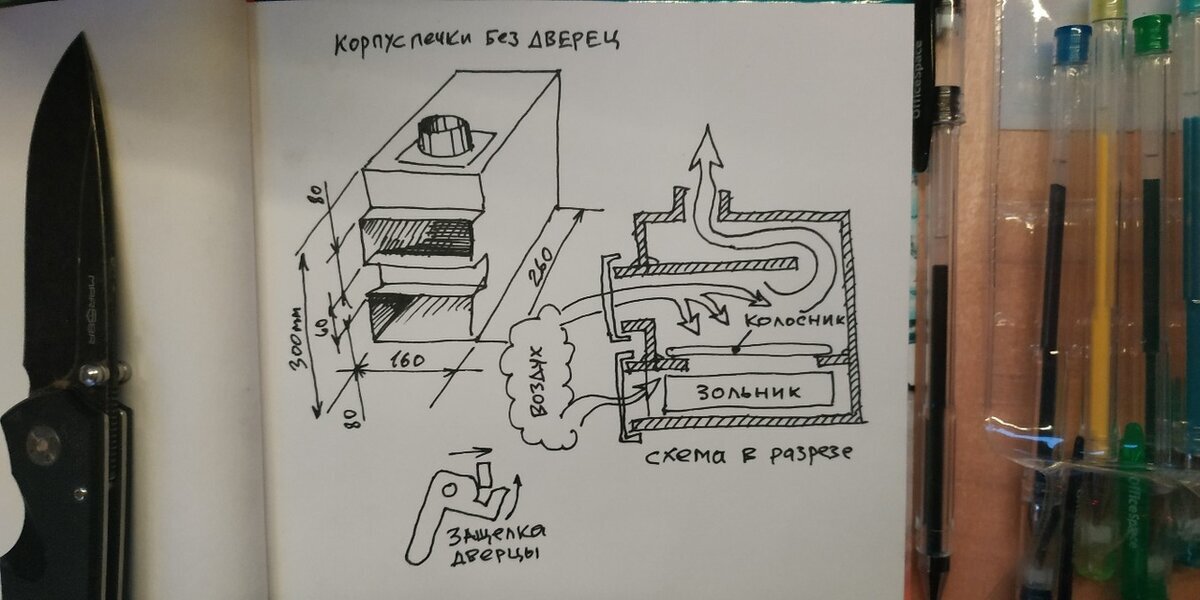 Корпус печки без дверец
80
300мм
40
160
80
260
воздух
колосник
зольник
схема в разрезе
защелка
дверцы
OfficeSpace
OfficeSpace